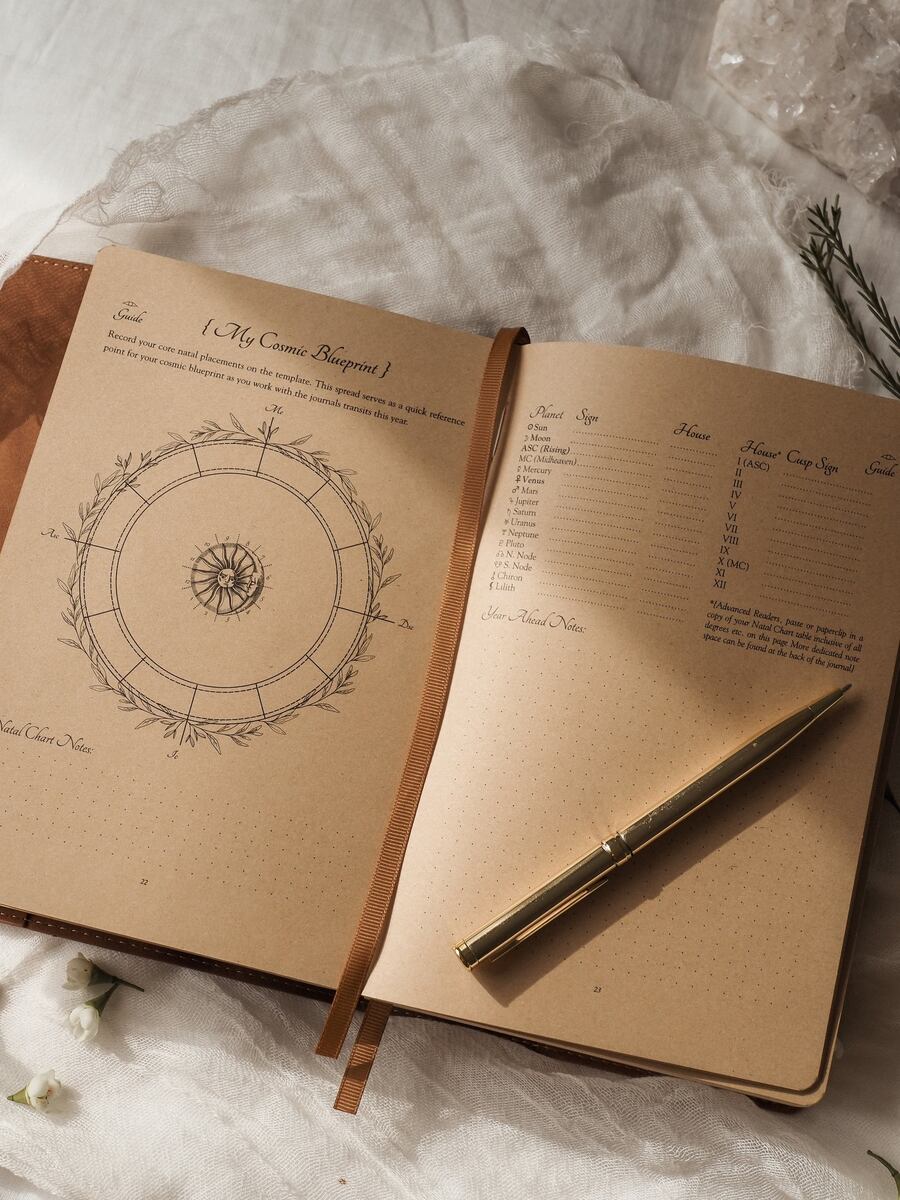 Guide
{ My Cosmic Blueprint }
Record your core natal placements on the template. This spread serves as a quick reference
point for your cosmic blueprint as you work with the journals transits this year.
Mc
Asc
Dsc
Ic
Natal Chart Notes:
22
Planet Sign House
☉ Sun
☽ Moon
ASC (Rising)
MC (Midheaven)
☿ Mercury
♀ Venus
♂ Mars
♃ Jupiter
♄ Saturn
♅ Uranus
♆ Neptune
♇ Pluto
☊ N. Node
☋ S. Node
⚷ Chiron
⚸ Lilith
House* Cusp Sign
Guide
I (ASC)
II
III
IV
V
VI
VII
VIII
IX
X (MC)
XI
XII
*{Advanced Readers, paste or paperclip in a
copy of your Natal Chart table inclusive of all
degrees etc. on this page More dedicated note
space can be found at the back of the journal}
Year Ahead Notes:
23